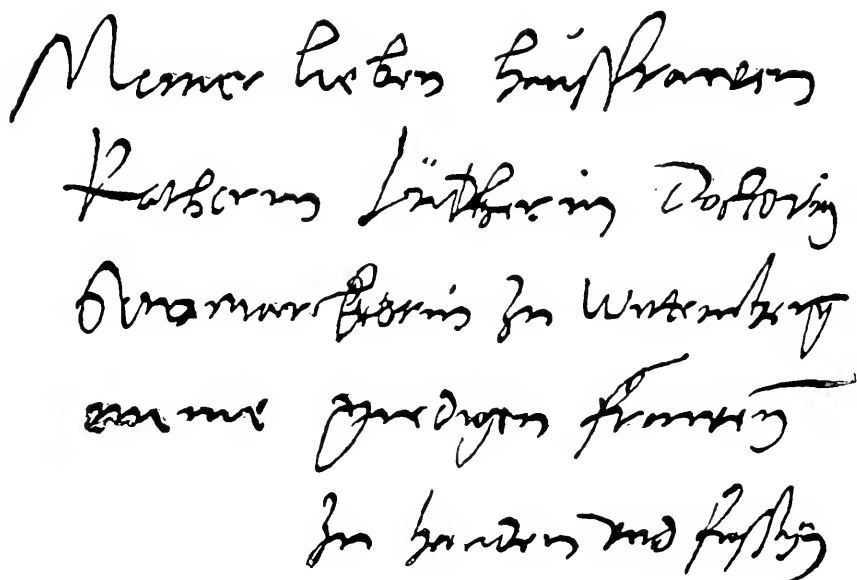 Meiner lieben hausfrawen
Katherin Lutherin Doctorin
Sewmarckterin zu Wittemberg
meiner gnedigen frawen
zu henden und fussen